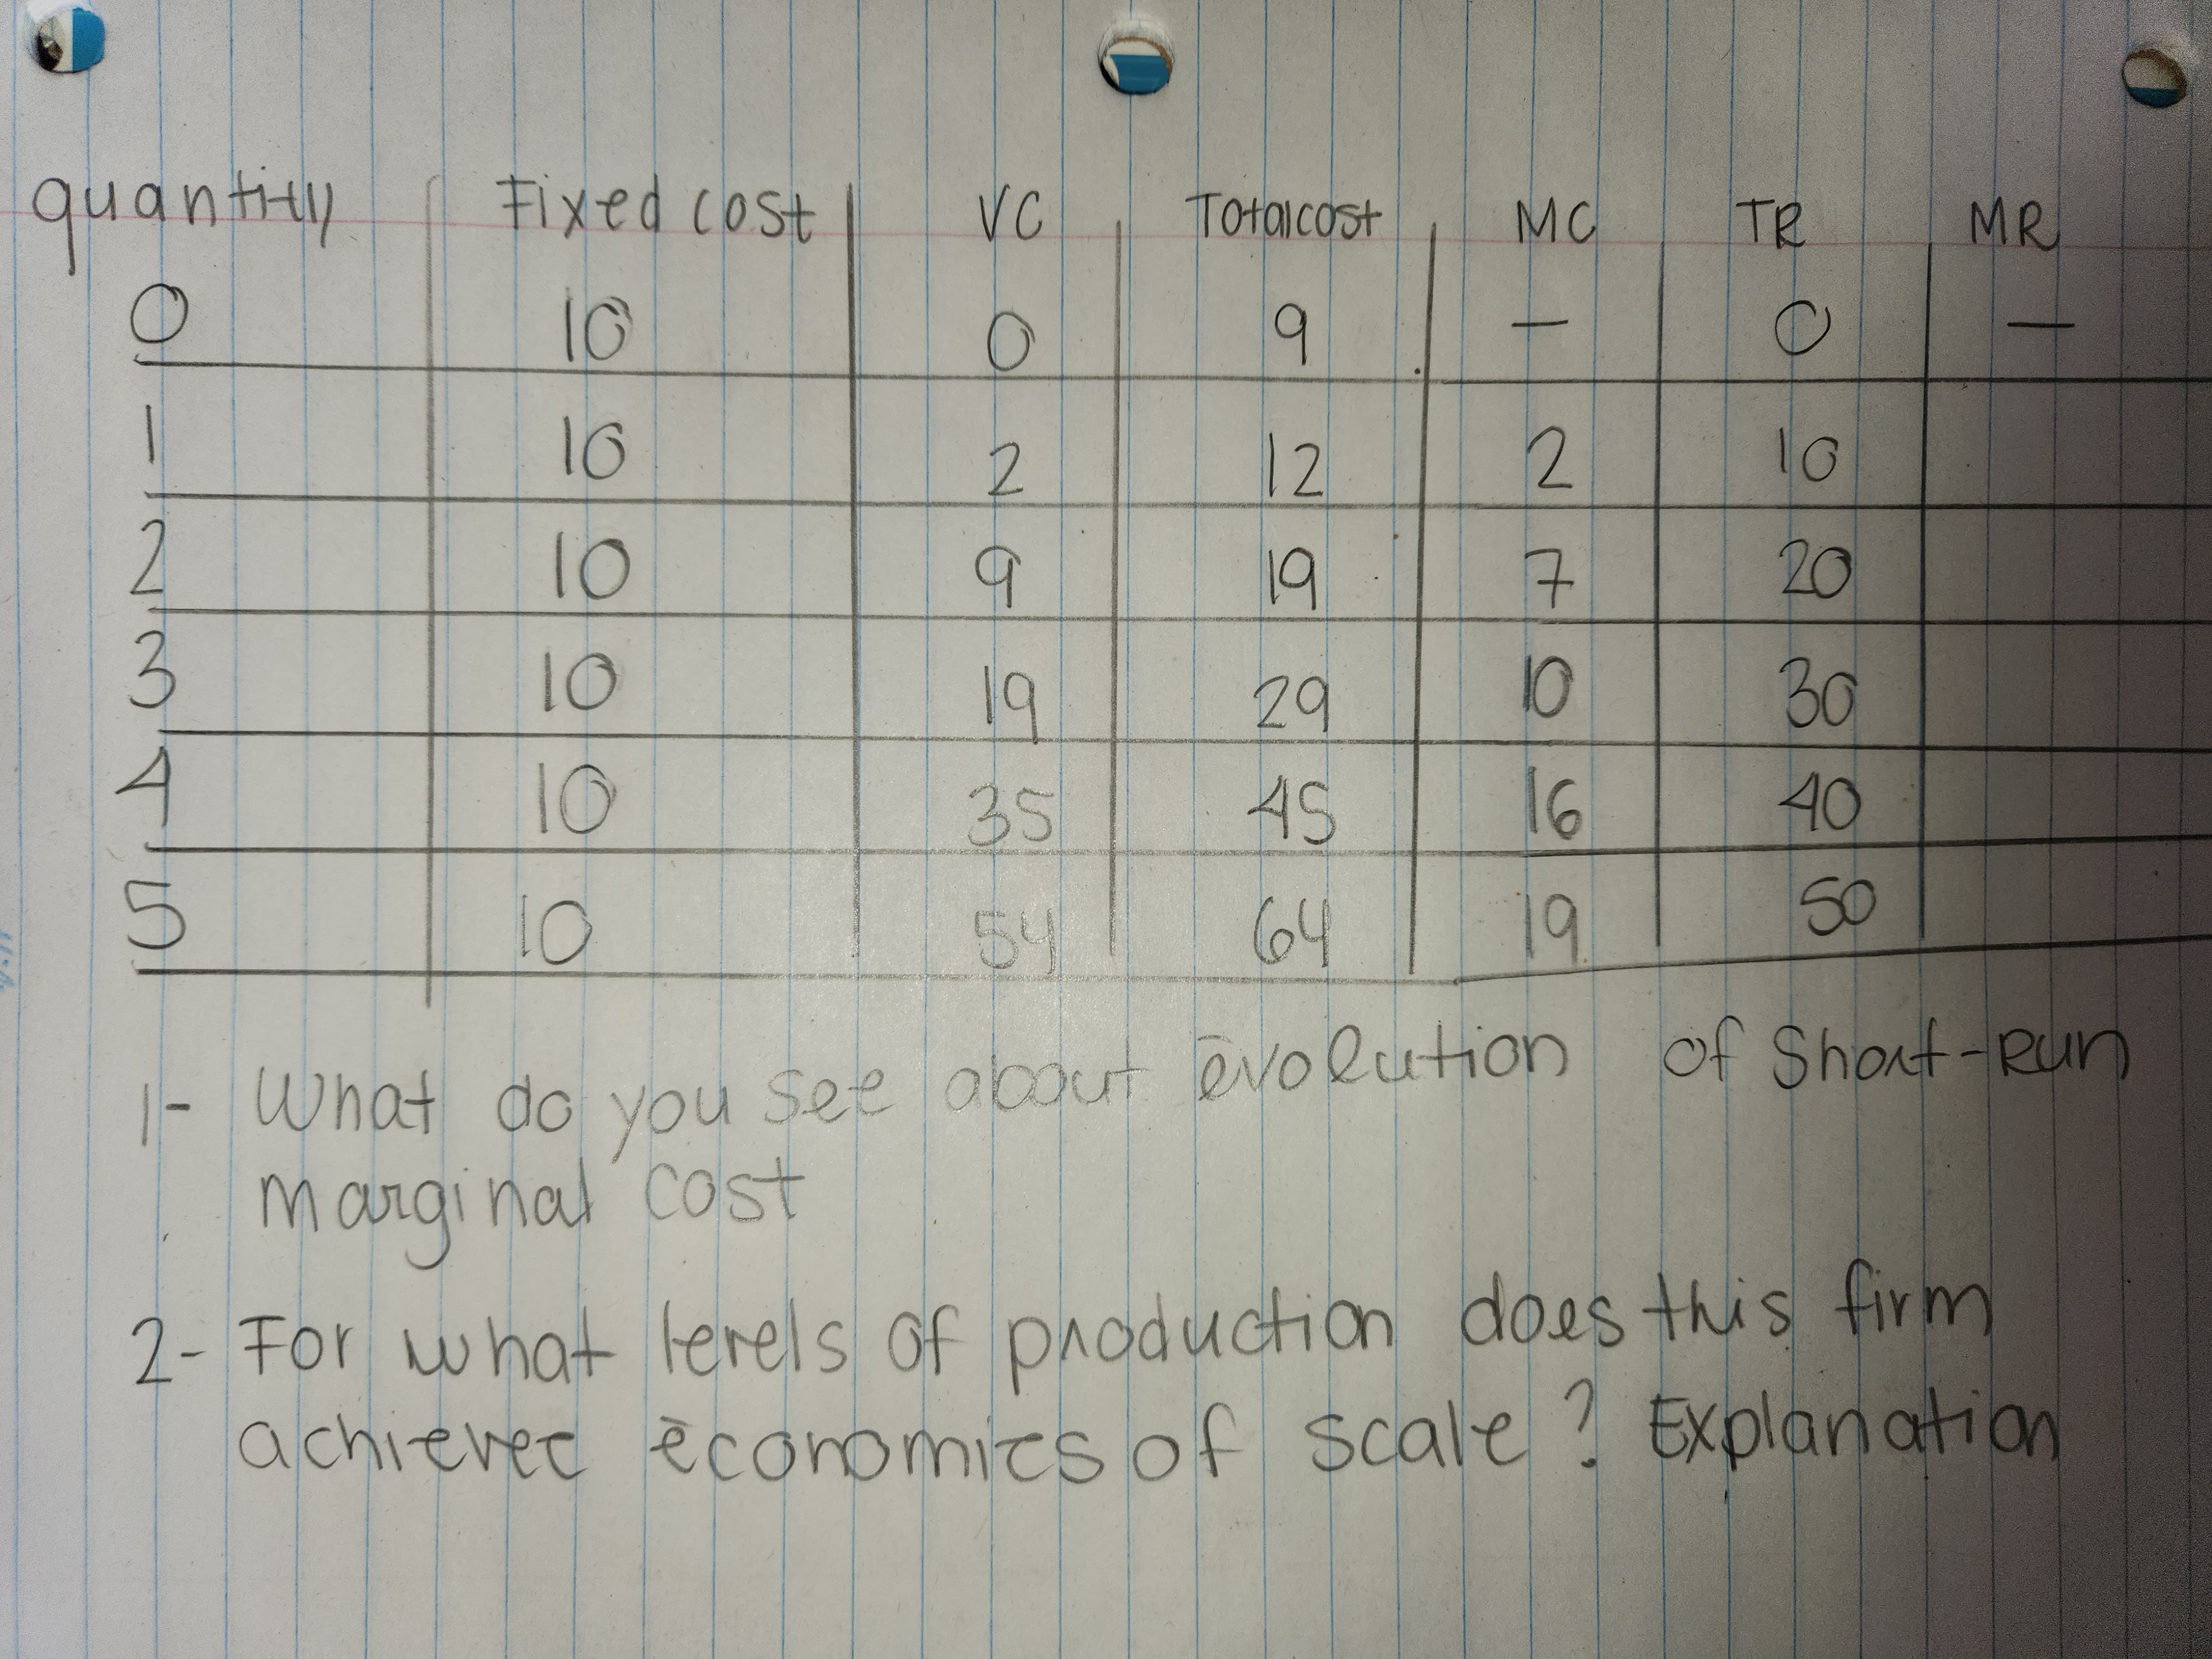 quantity Fixed cost VC Total cost MC TR MR
0 10 0 9 — 0 —
1 10 2 12 2 10
2 10 9 19 7 20
3 10 19 29 10 30
4 10 35 45 16 40
5 10 54 64 19 50
1- What do you see about evolution of Short-Run
marginal cost
2- For what levels of production does this firm
achievee economies of scale? Explanation